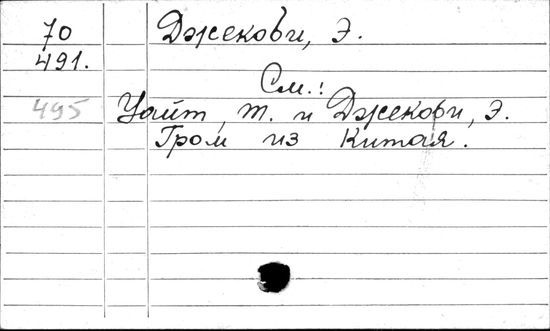 70 Джекоби, Э.
491.
См.:
495 Уайт, т. и Джекоби, Э.
Гром из Китая.